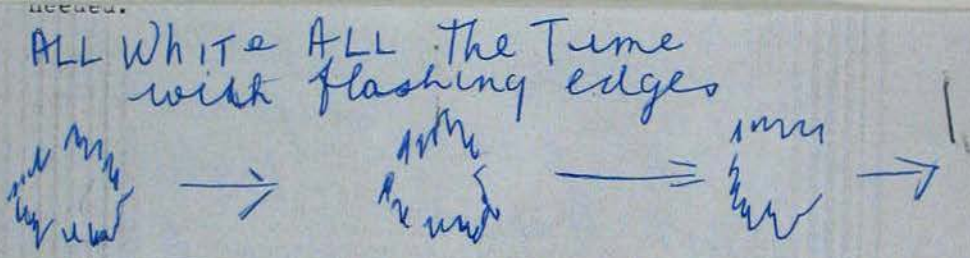 needed.
ALL WhITe ALL the Time
with flashing edges